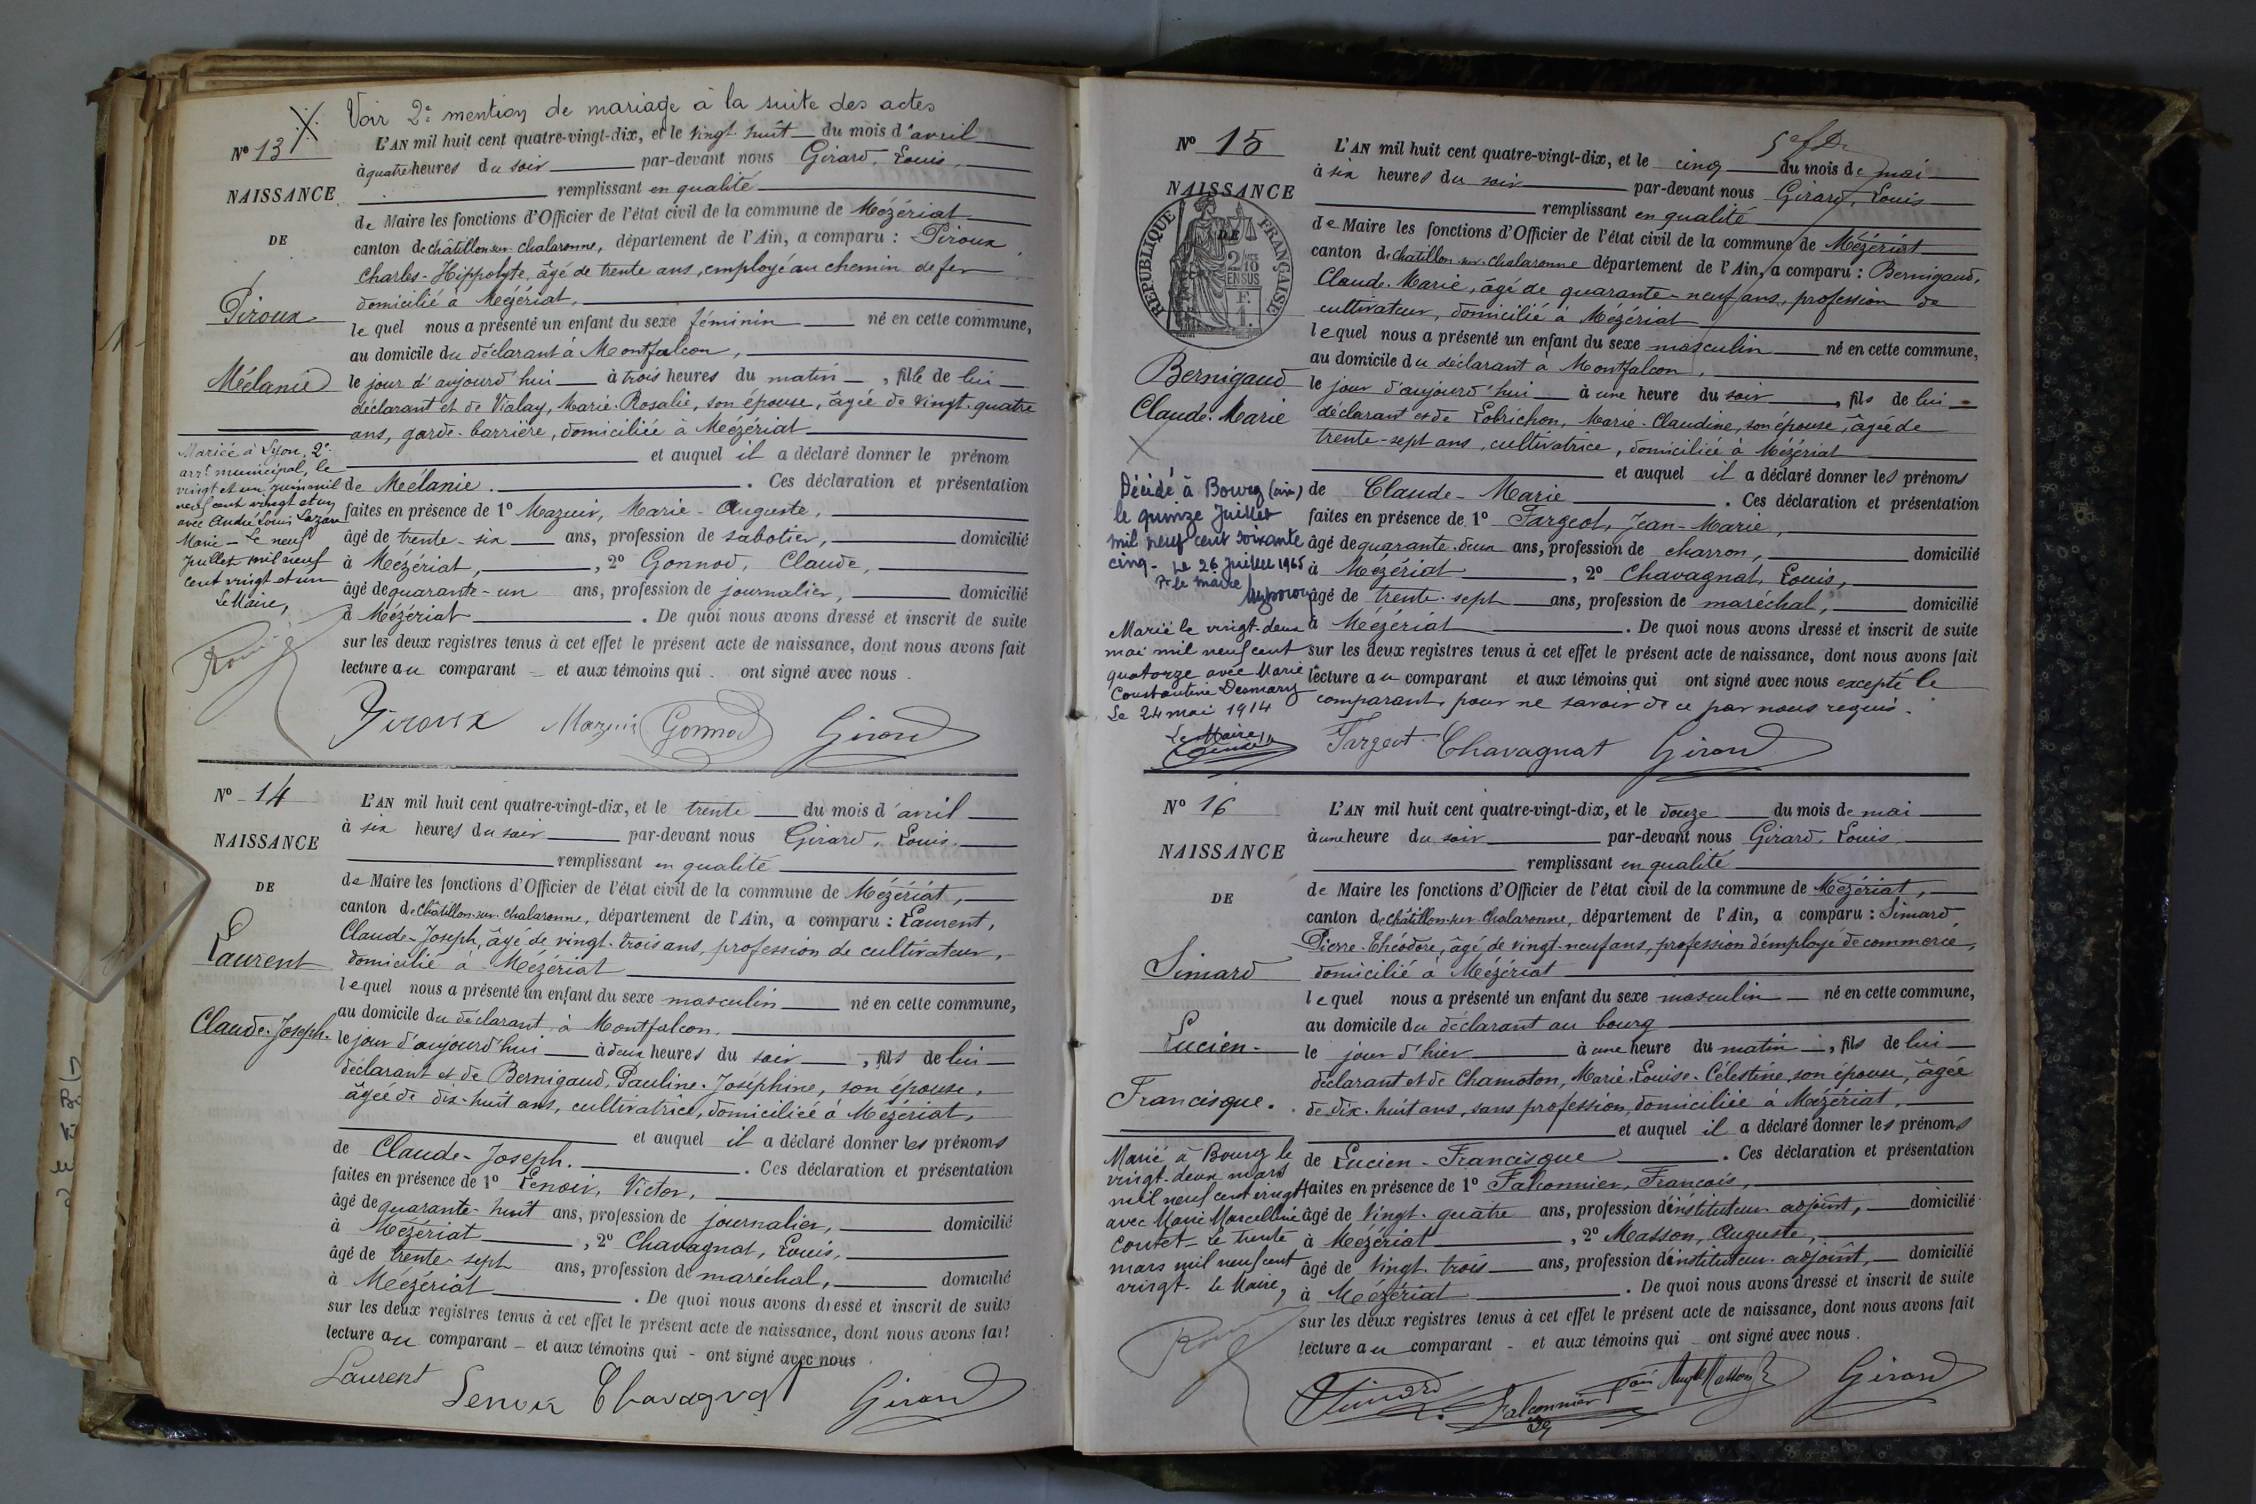 Voir 2e mention de mariage à la suite des actes
No 13
NAISSANCE
DE
Piroux
Mélanie
Mariée à Lyon, 2e
arrt municipal, le
vingt et un juin mil
neuf cent vingt et un
avec André Louis Lazare
Marie - Le neuf
Juillet mil neuf
cent vingt et un
Le Maire,
L'AN mil huit cent quatre-vingt-dix, et le vingt-huit du mois d'avril
à quatre heures du soir par-devant nous Girard, Louis,
remplissant en qualité
de Maire les fonctions d'Officier de l'état civil de la commune de Mézériat
canton de Châtillon-sur-Chalaronne, département de l'Ain, a comparu : Piroux
Charles-Hippolyte, âgé de trente ans, employé au chemin de fer
domicilié à Mézériat,
lequel nous a présenté un enfant du sexe féminin né en cette commune,
au domicile du déclarant à Montfalcon,
le jour d'aujourd'hui à trois heures du matin, fille de lui
déclarant et de Vialay, Marie-Rosalie, son épouse, âgée de vingt-quatre
ans, garde-barrière, domiciliée à Mézériat
et auquel il a déclaré donner le prénom
de Mélanie. Ces déclaration et présentation
faites en présence de 1o Mazuir, Marie-Auguste,
âgé de trente-six ans, profession de sabotier, domicilié
à Mézériat, 2o Gonnod, Claude,
âgé de quarante-un ans, profession de journalier, domicilié
à Mézériat. De quoi nous avons dressé et inscrit de suite
sur les deux registres tenus à cet effet le présent acte de naissance, dont nous avons fait
lecture au comparant et aux témoins qui ont signé avec nous.
Piroux Mazuir Gonnod Girard
No 14
NAISSANCE
DE
Laurent
Claude-Joseph.
L'AN mil huit cent quatre-vingt-dix, et le trente du mois d'avril
à six heures du soir par-devant nous Girard, Louis,
remplissant en qualité
de Maire les fonctions d'Officier de l'état civil de la commune de Mézériat,
canton de Châtillon-sur-Chalaronne, département de l'Ain, a comparu : Laurent,
Claude-Joseph, âgé de vingt-trois ans, profession de cultivateur,
domicilié à Mézériat
lequel nous a présenté un enfant du sexe masculin né en cette commune,
au domicile du déclarant à Montfalcon,
le jour d'aujourd'hui à deux heures du soir, fils de lui
déclarant et de Bernigaud, Pauline-Joséphine, son épouse,
âgée de dix-huit ans, cultivatrice, domiciliée à Mézériat,
et auquel il a déclaré donner les prénoms
de Claude-Joseph. Ces déclaration et présentation
faites en présence de 1o Lenoir, Victor,
âgé de quarante-huit ans, profession de journalier, domicilié
à Mézériat, 2o Chavagnat, Louis,
âgé de trente-sept ans, profession de maréchal, domicilié
à Mézériat. De quoi nous avons dressé et inscrit de suite
sur les deux registres tenus à cet effet le présent acte de naissance, dont nous avons fait
lecture au comparant et aux témoins qui ont signé avec nous
Laurent Lenoir Chavagnat Girard
No 15
NAISSANCE
DE
REPUBLIQUE FRANÇAISE
2/10 EN SUS
F. 1.
Bernigaud
Claude-Marie
Décédé à Bourg (Ain)
le quinze Juillet
mil neuf cent soixante
cinq - Le 26 Juillet 1965
Pr le Maire
Marié le vingt-deux
mai mil neuf cent
quatorze avec Marie
Constantine Desmary
Le 24 mai 1914
Le Maire
L'AN mil huit cent quatre-vingt-dix, et le cinq du mois de mai
à six heures du soir par-devant nous Girard, Louis
remplissant en qualité
de Maire les fonctions d'Officier de l'état civil de la commune de Mézériat
canton de Châtillon-sur-Chalaronne département de l'Ain, a comparu : Bernigaud,
Claude-Marie, âgé de quarante-neuf ans, profession de
cultivateur, domicilié à Mézériat
lequel nous a présenté un enfant du sexe masculin né en cette commune,
au domicile du déclarant à Montfalcon,
le jour d'aujourd'hui à une heure du soir, fils de lui
déclarant et de Lobrichon, Marie-Claudine, son épouse, âgée de
trente-sept ans, cultivatrice, domiciliée à Mézériat
et auquel il a déclaré donner les prénoms
de Claude-Marie. Ces déclaration et présentation
faites en présence de 1o Fargeot, Jean-Marie,
âgé de quarante-deux ans, profession de charron, domicilié
à Mézériat, 2o Chavagnat, Louis,
âgé de trente-sept ans, profession de maréchal, domicilié
à Mézériat. De quoi nous avons dressé et inscrit de suite
sur les deux registres tenus à cet effet le présent acte de naissance, dont nous avons fait
lecture au comparant et aux témoins qui ont signé avec nous excepté le
comparant pour ne savoir de ce par nous requis.
Fargeot Chavagnat Girard
No 16
NAISSANCE
DE
Simard
Lucien-
Francisque.
Marié à Bourg le
vingt-deux mars
mil neuf cent vingt
avec Marie Marcelline
Coutet - Le trente
mars mil neuf cent
vingt- Le Maire,
L'AN mil huit cent quatre-vingt-dix, et le douze du mois de mai
à une heure du soir par-devant nous Girard, Louis
remplissant en qualité
de Maire les fonctions d'Officier de l'état civil de la commune de Mézériat,
canton de Châtillon-sur-Chalaronne, département de l'Ain, a comparu : Simard
Pierre-Théodore, âgé de vingt-neuf ans, profession d'employé de commerce,
domicilié à Mézériat
lequel nous a présenté un enfant du sexe masculin né en cette commune,
au domicile du déclarant au bourg
le jour d'hier à une heure du matin, fils de lui
déclarant et de Chamoton, Marie-Louise-Célestine, son épouse, âgée
de dix-huit ans, sans profession, domiciliée à Mézériat,
et auquel il a déclaré donner les prénoms
de Lucien-Francisque. Ces déclaration et présentation
faites en présence de 1o Falconnier, François,
âgé de vingt-quatre ans, profession d'instituteur adjoint, domicilié
à Mézériat, 2o Masson, Auguste,
âgé de vingt-trois ans, profession d'instituteur adjoint, domicilié
à Mézériat. De quoi nous avons dressé et inscrit de suite
sur les deux registres tenus à cet effet le présent acte de naissance, dont nous avons fait
lecture au comparant et aux témoins qui ont signé avec nous.
Simard Falconnier Girard